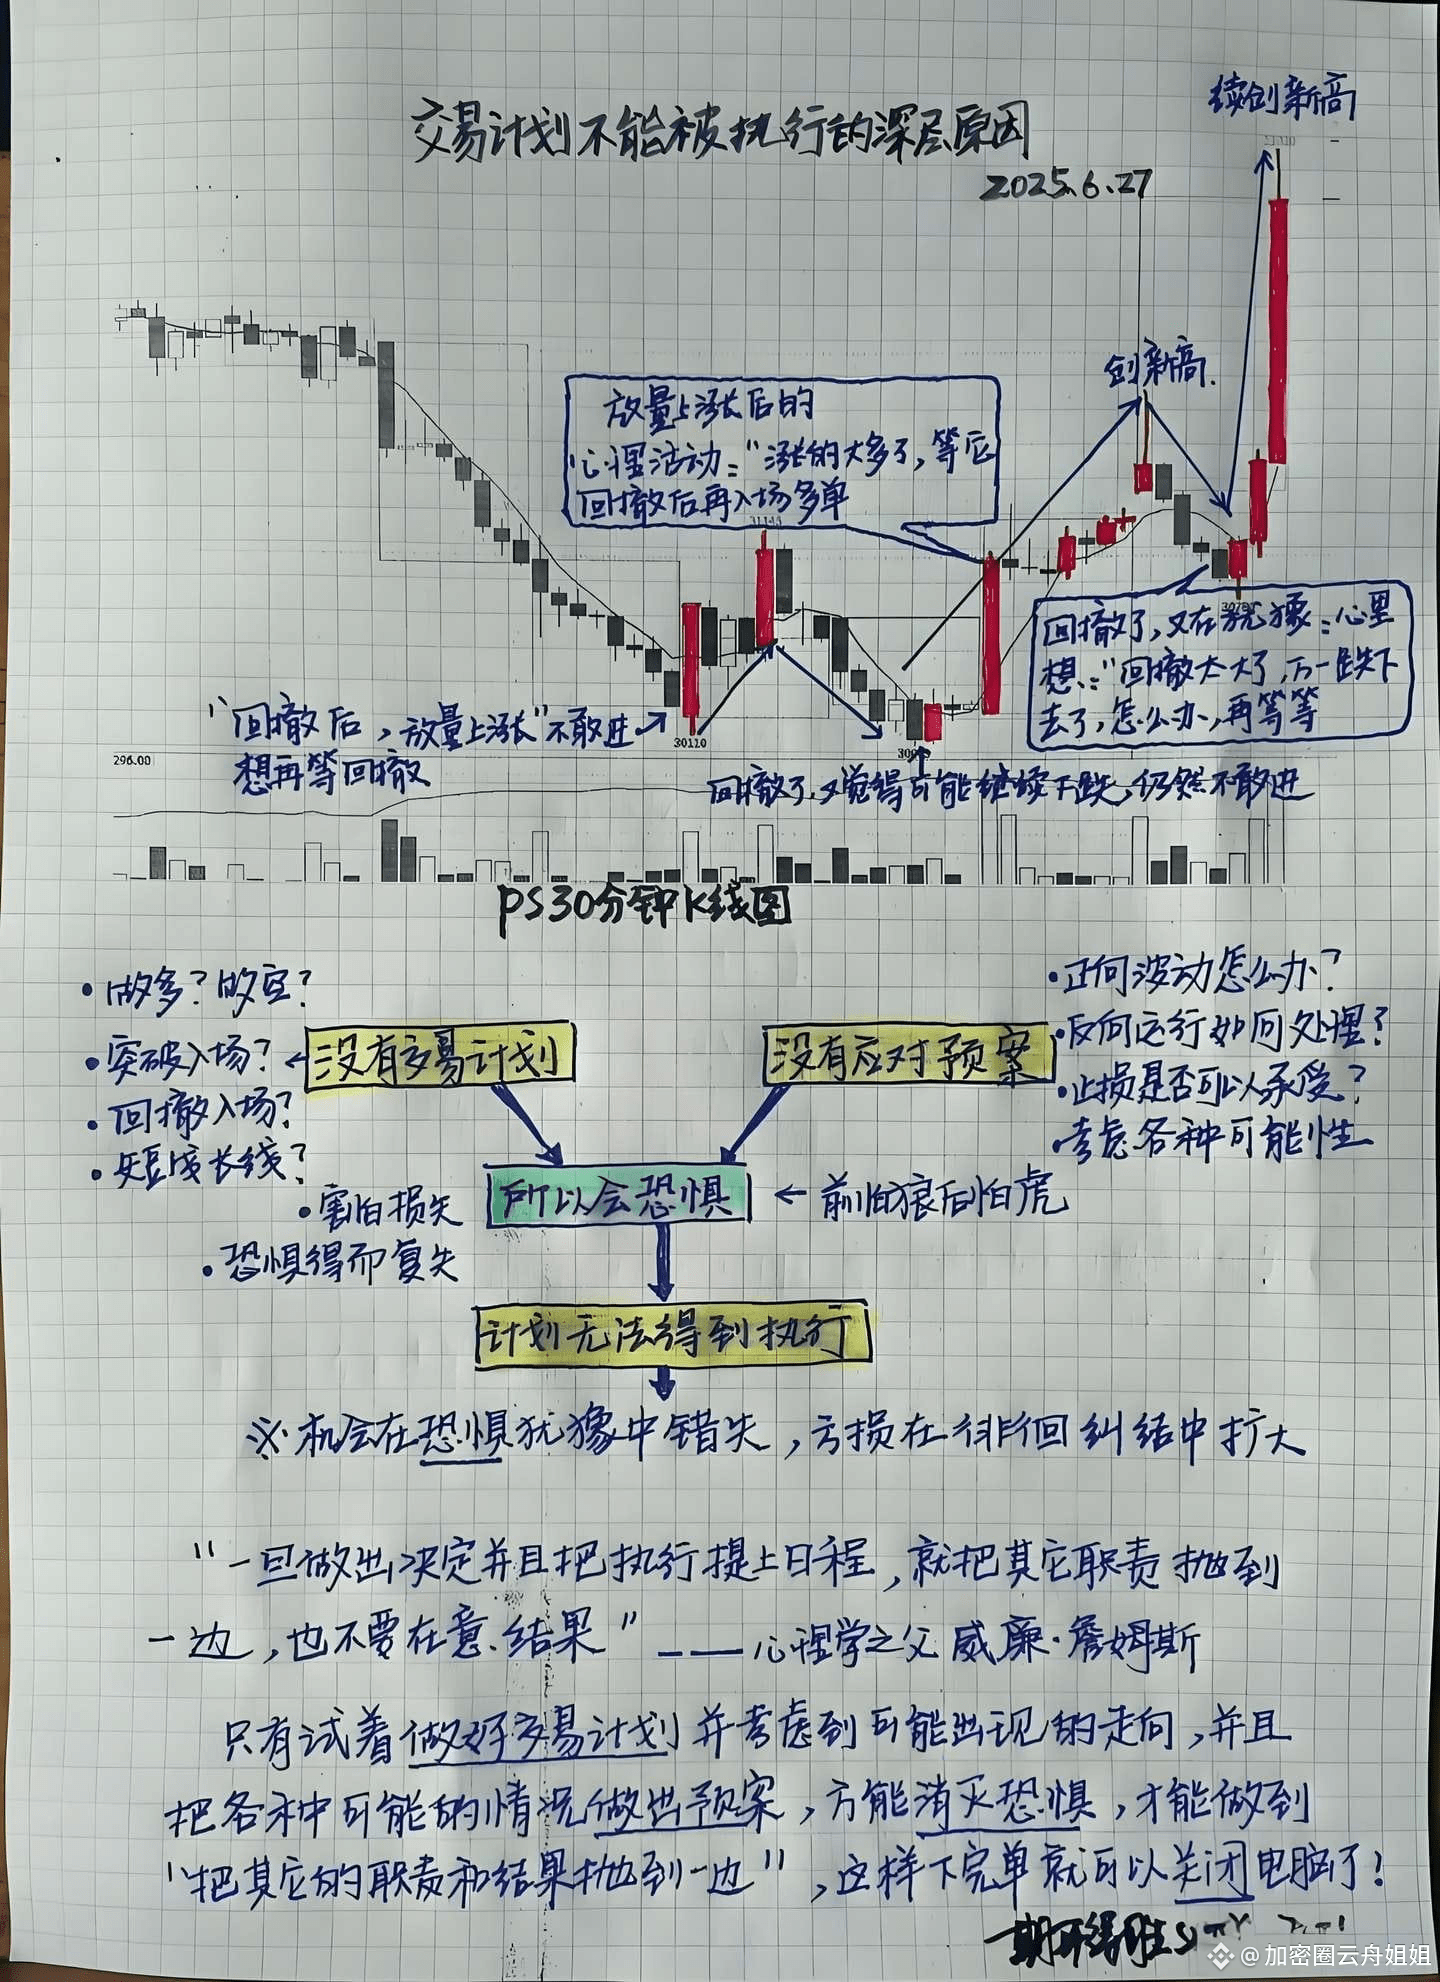 续创新高
交易计划不能被执行的深层原因
2025.6.27
创新高.
放量上涨后的
心理活动:"涨的太多了,等它
回撤后再入场多单
回撤了,又在犹豫:心里
想:"回撤太大了,万一跌下
去了,怎么办,再等等
"回撤后,放量上涨"不敢进→
想再等回撤
30110
296.00
回撤了,又觉得可能继续下跌,仍然不敢进
PS30分钟K线图
·做多?做空?
·突破入场?
·回撤入场?
·短或长线?
没有交易计划
没有应对预案
·正向波动怎么办?
·反向运行如何处理?
·止损是否可以承受?
·考虑各种可能性
·害怕损失
·恐惧得而复失
所以会恐惧
←前怕狼后怕虎
计划无法得到执行
※机会在恐惧犹豫中错失,亏损在徘徊纠结中扩大
"一旦做出决定并且把执行提上日程,就把其它职责抛到
一边,也不要在意结果"———心理学之父威廉·詹姆斯
只有试着做好交易计划并考虑到可能出现的走向,并且
把各种可能的情况做出预案,方能消灭恐惧,才能做到
"把其它的职责和结果抛到一边",这样下完单就可以关闭电脑了!
@加密圈云舟姐姐